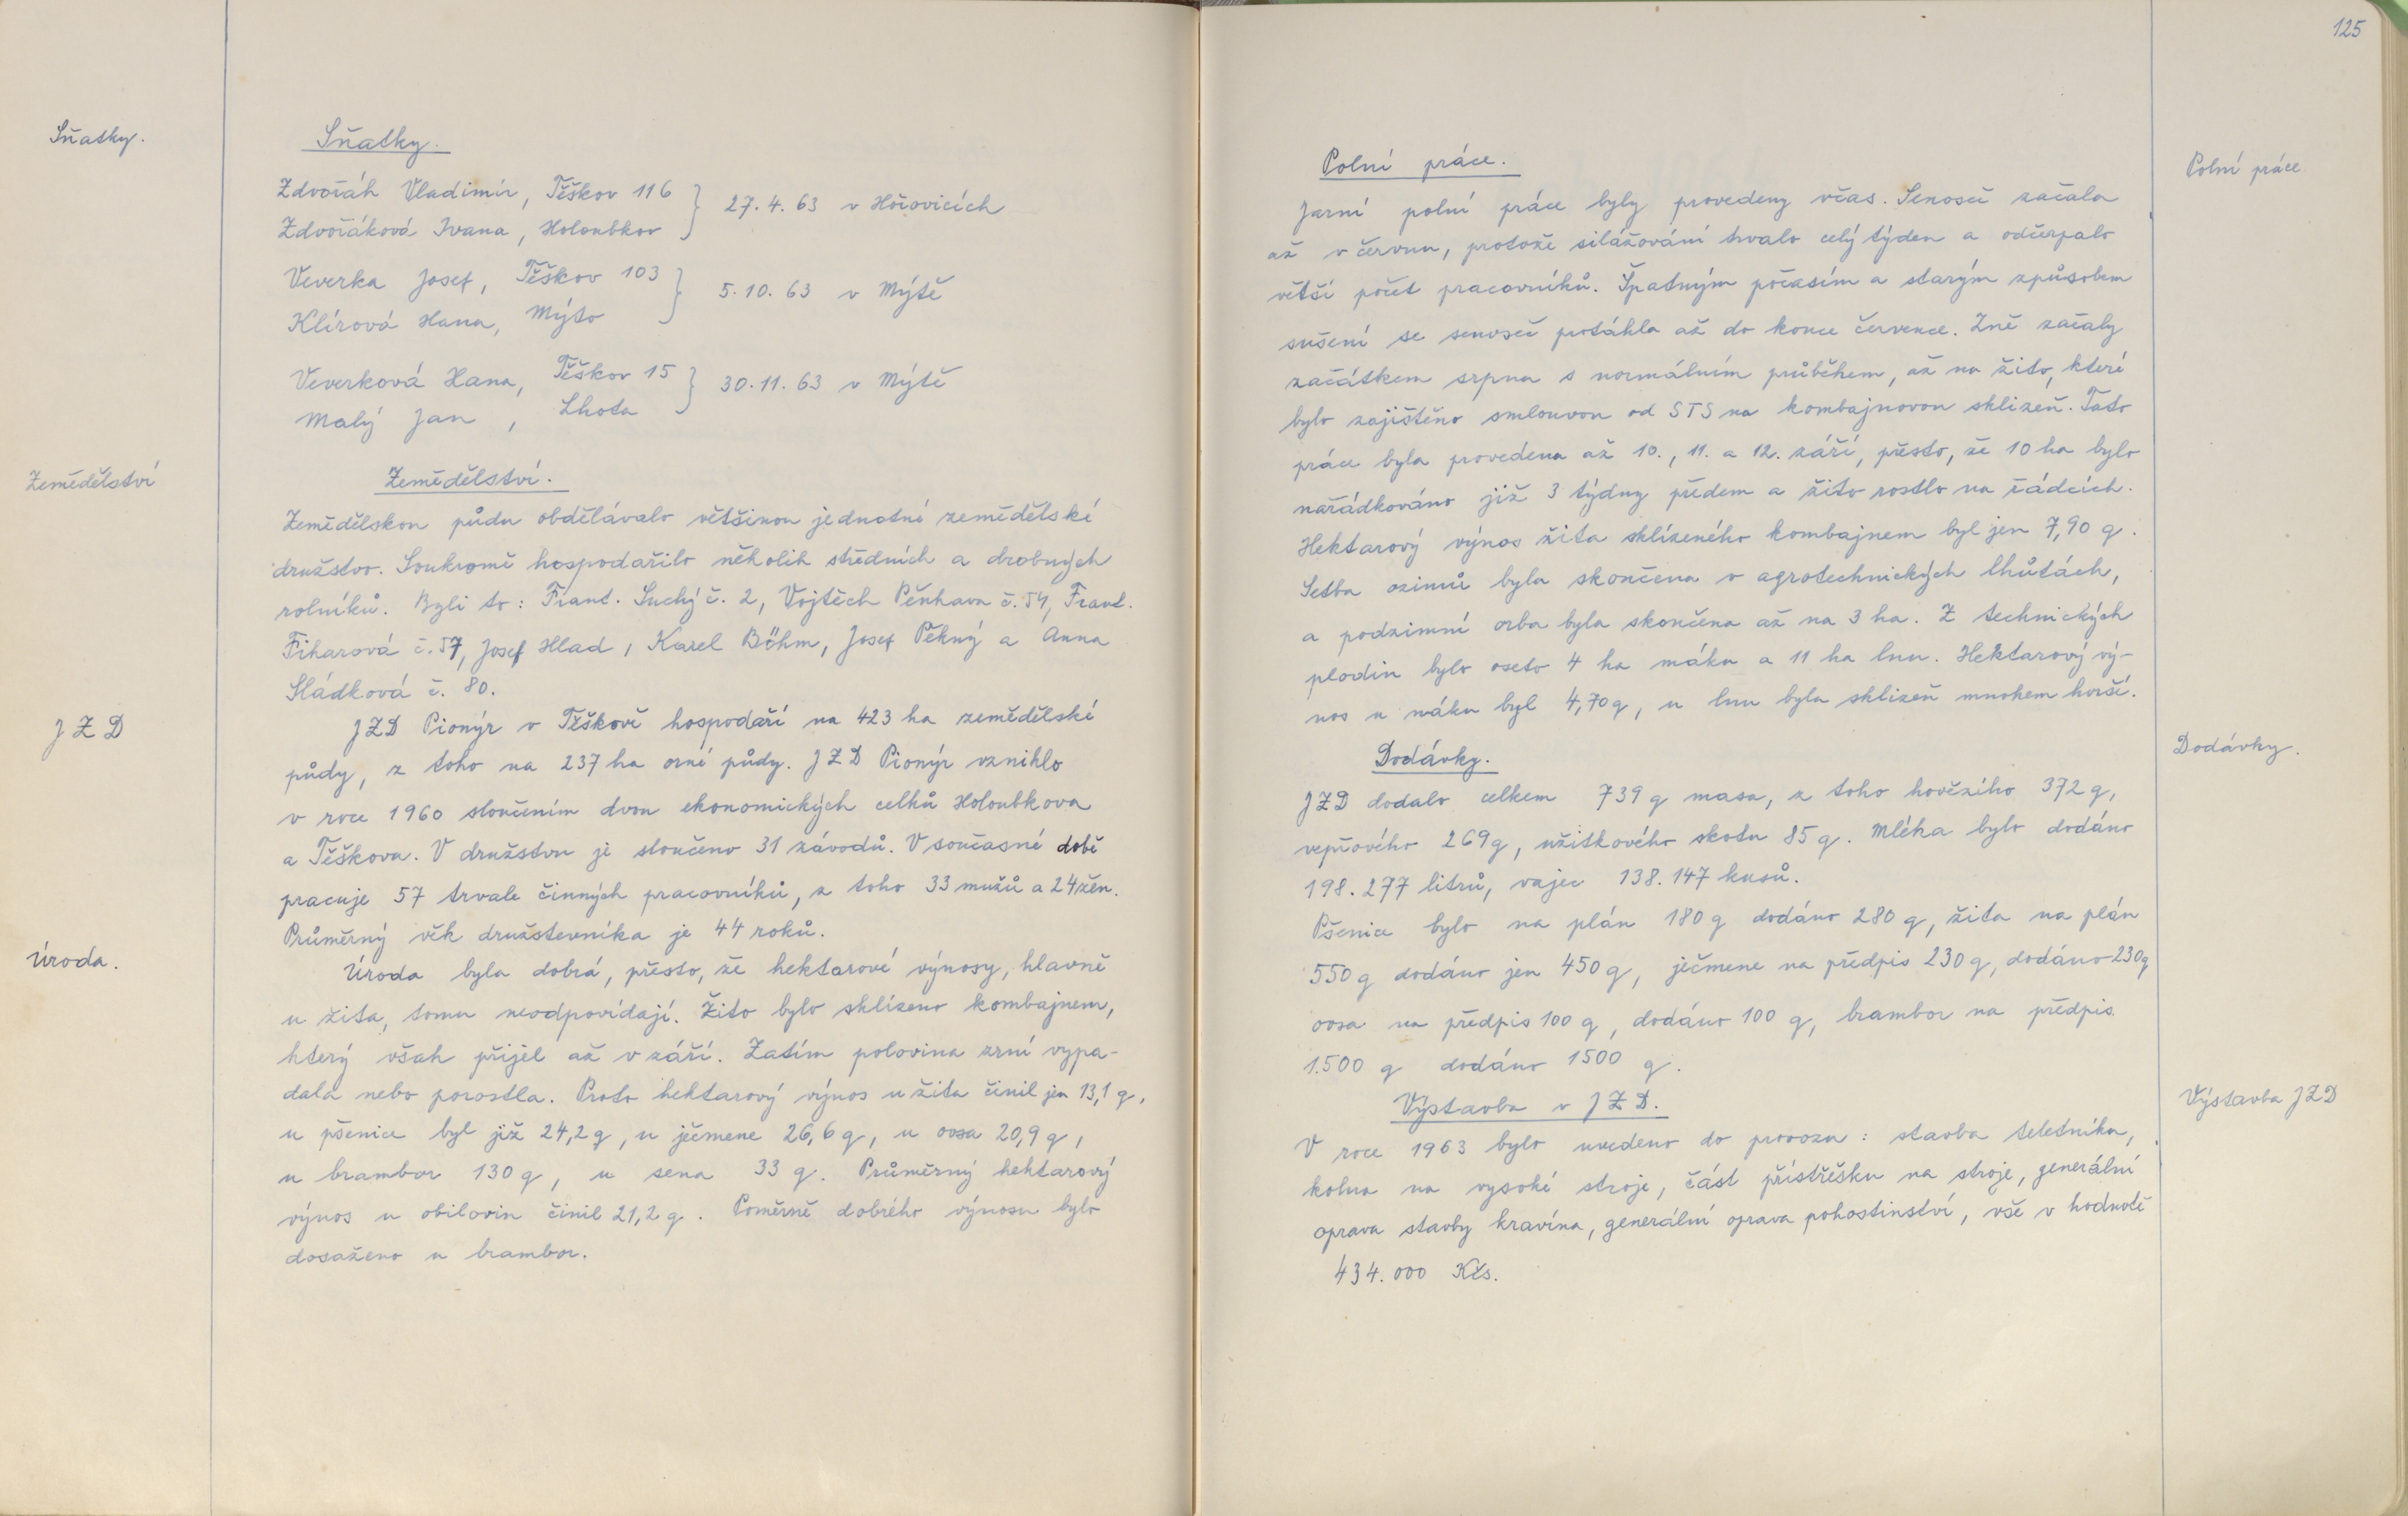 Sňatky.
Sňatky.
Zdvořák Vladimír, Těškov 116
Zdvořáková Ivana, Holoubkov
27. 4. 63 v Hořovicích
Veverka Josef, Těškov 103
Klírová Hana, Mýto
5. 10. 63 v Mýtě
Veverková Hana, Těškov 15
Malý Jan, Lhota
30. 11. 63 v Mýtě
Zemědělství
Zemědělství.
Zemědělskou půdu obdělávalo většinou jednotné zemědělské
družstvo. Soukromě hospodařilo několik středních a drobných
rolníků. Byli to: Frant. Suchý č. 2, Vojtěch Pěnkava č. 54, Frant.
Fiharová č. 57, Josef Hlad, Karel Böhm, Josef Pěkný a Anna
Sládková č. 80.
JZD
JZD Pionýr v Těškově hospodaří na 423 ha zemědělské
půdy, z toho na 237 ha orné půdy. JZD Pionýr vzniklo
v roce 1960 sloučením dvou ekonomických celků Holoubkova
a Těškova. V družstvu je sloučeno 31 závodů. V současné době
pracuje 57 trvale činných pracovníků, z toho 33 mužů a 24 žen.
Průměrný věk družstevníka je 44 roků.
Úroda.
Úroda byla dobrá, přesto, že hektarové výnosy, hlavně
u žita, tomu neodpovídají. Žito bylo sklízeno kombajnem,
který však přijel až v září. Zatím polovina zrní vypa-
dala nebo porostla. Proto hektarový výnos u žita činil jen 13,1 q,
u pšenice byl již 24,2 q, u ječmene 26,6 q, u ovsa 20,9 q,
u brambor 130 q, u sena 33 q. Průměrný hektarový
výnos u obilovin činil 21,2 q. Poměrně dobrého výnosu bylo
dosaženo u brambor.
125
Polní práce.
Polní práce
Jarní polní práce byly provedeny včas. Senoseč začala
až v červnu, protože silážování trvalo celý týden a odčerpalo
větší počet pracovníků. Špatným počasím a starým způsobem
sušení se senoseč protáhla až do konce července. Žně začaly
začátkem srpna s normálním průběhem, až na žito, které
bylo zajištěno smlouvou od STS na kombajnovou sklizeň. Tato
práce byla provedena až 10., 11. a 12. září, přesto, že 10 ha bylo
nařádkováno již 3 týdny předem a žito rostlo na řádcích.
Hektarový výnos žita sklízeného kombajnem byl jen 7,90 q.
Setba ozimů byla skončena v agrotechnických lhůtách,
a podzimní orba byla skončena až na 3 ha. Z technických
plodin bylo oseto 4 ha máku a 11 ha lnu. Hektarový vý-
nos u máku byl 4,70 q, u lnu byla sklizeň mnohem horší.
Dodávky.
Dodávky.
JZD dodalo celkem 739 q masa, z toho hovězího 372 q,
vepřového 269 q, užitkového skotu 85 q. Mléka bylo dodáno
198.277 litrů, vajec 138.147 kusů.
Pšenice bylo na plán 180 q dodáno 280 q, žita na plán
550 q dodáno jen 450 q, ječmene na předpis 230 q, dodáno 230 q
ovsa na předpis 100 q, dodáno 100 q, brambor na předpis
1.500 q dodáno 1500 q.
Výstavba v JZD.
Výstavba JZD
V roce 1963 bylo uvedeno do provozu: stavba teletníka,
kolna na vysoké stroje, část přístřešku na stroje, generální
oprava stavby kravína, generální oprava pohostinství, vše v hodnotě
434.000 Kčs.